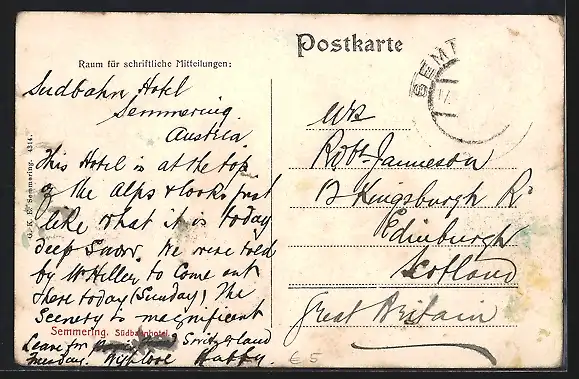 Postkarte
Raum für schriftliche Mitteilungen:
SEM
Sudbahn Hotel
Semmering.
Austria
This Hotel is at the top
of the Alps & looks just
like what it is today
deep Snow. We were told
by Mr Heller to Come out
here today (Sunday). The
Scenery is magnificent
Semmering. Südbahnhotel.
Leave for Switzerland
Tuesday. Hubby.
G. K. B. Semmering. 4314.
Robt. Jameson
13 Kingsburgh Rd
Edinburgh
Scotland
Great Britain
€ 5